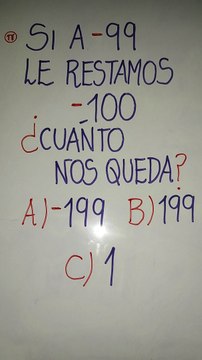 SI A -99
LE RESTAMOS
-100
¿CUÁNTO
NOS QUEDA?
A) -199 B) 199
C) 1